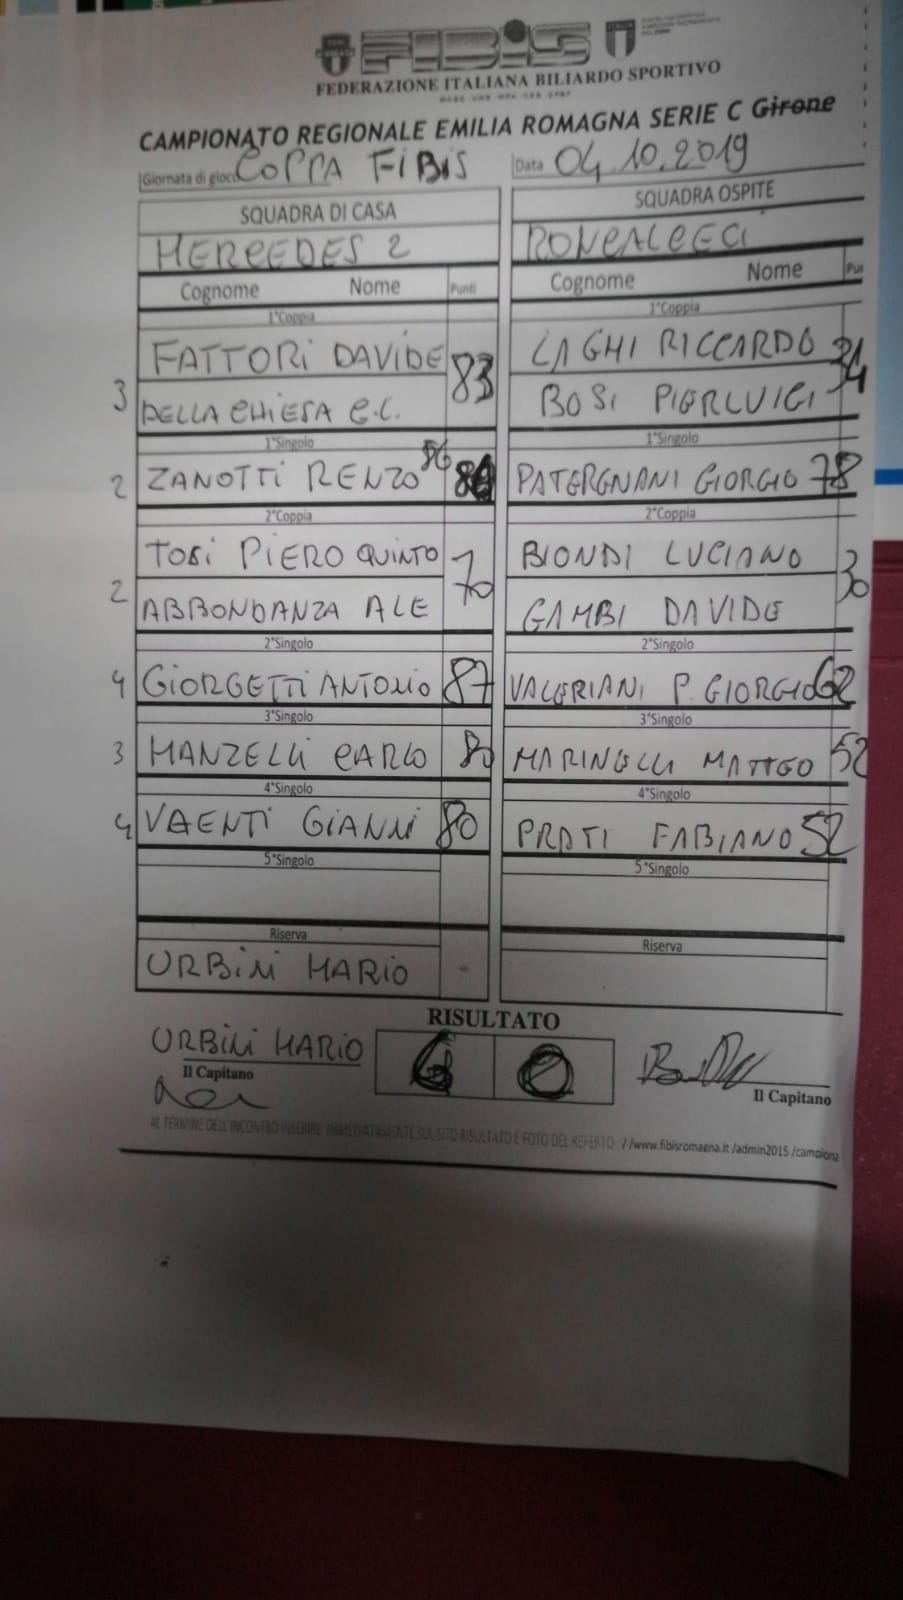 FIBiS
FEDERAZIONE ITALIANA BILIARDO SPORTIVO
CAMPIONATO REGIONALE EMILIA ROMAGNA SERIE C Girone
Giornata di gioco COPPA FIBIS Data 04.10.2019
SQUADRA DI CASA SQUADRA OSPITE
MERCEDES 2 RONCALCECI
Cognome Nome Punti Cognome Nome Pu
1°Coppia 1°Coppia
FATTORI DAVIDE LAGHI RICCARDO
3 83 34
DELLA CHIESA G.C. BOSI PIERLUIGI
1°Singolo 1°Singolo
2 ZANOTTI RENZO 86 PATERGNANI GIORGIO 78
2°Coppia 2°Coppia
TOSI PIERO QUINTO BIONDI LUCIANO
2 70 30
ABBONDANZA ALE GAMBI DAVIDE
2°Singolo 2°Singolo
4 GIORGETTI ANTONIO 87 VALERIANI P. GIORGIO 62
3°Singolo 3°Singolo
3 MANZELLI CARLO 80 MARINELLI MATTEO 52
4°Singolo 4°Singolo
4 VAENTI GIANNI 80 PRATI FABIANO 52
5°Singolo 5°Singolo
Riserva Riserva
URBINI MARIO
RISULTATO
URBINI MARIO 6 0
Il Capitano Il Capitano
AL TERMINE DELL'INCONTRO INSERIRE IMMEDIATAMENTE SUL SITO RISULTATO E FOTO DEL REFERTO //www.fibisromagna.it /admin2015 /campiona